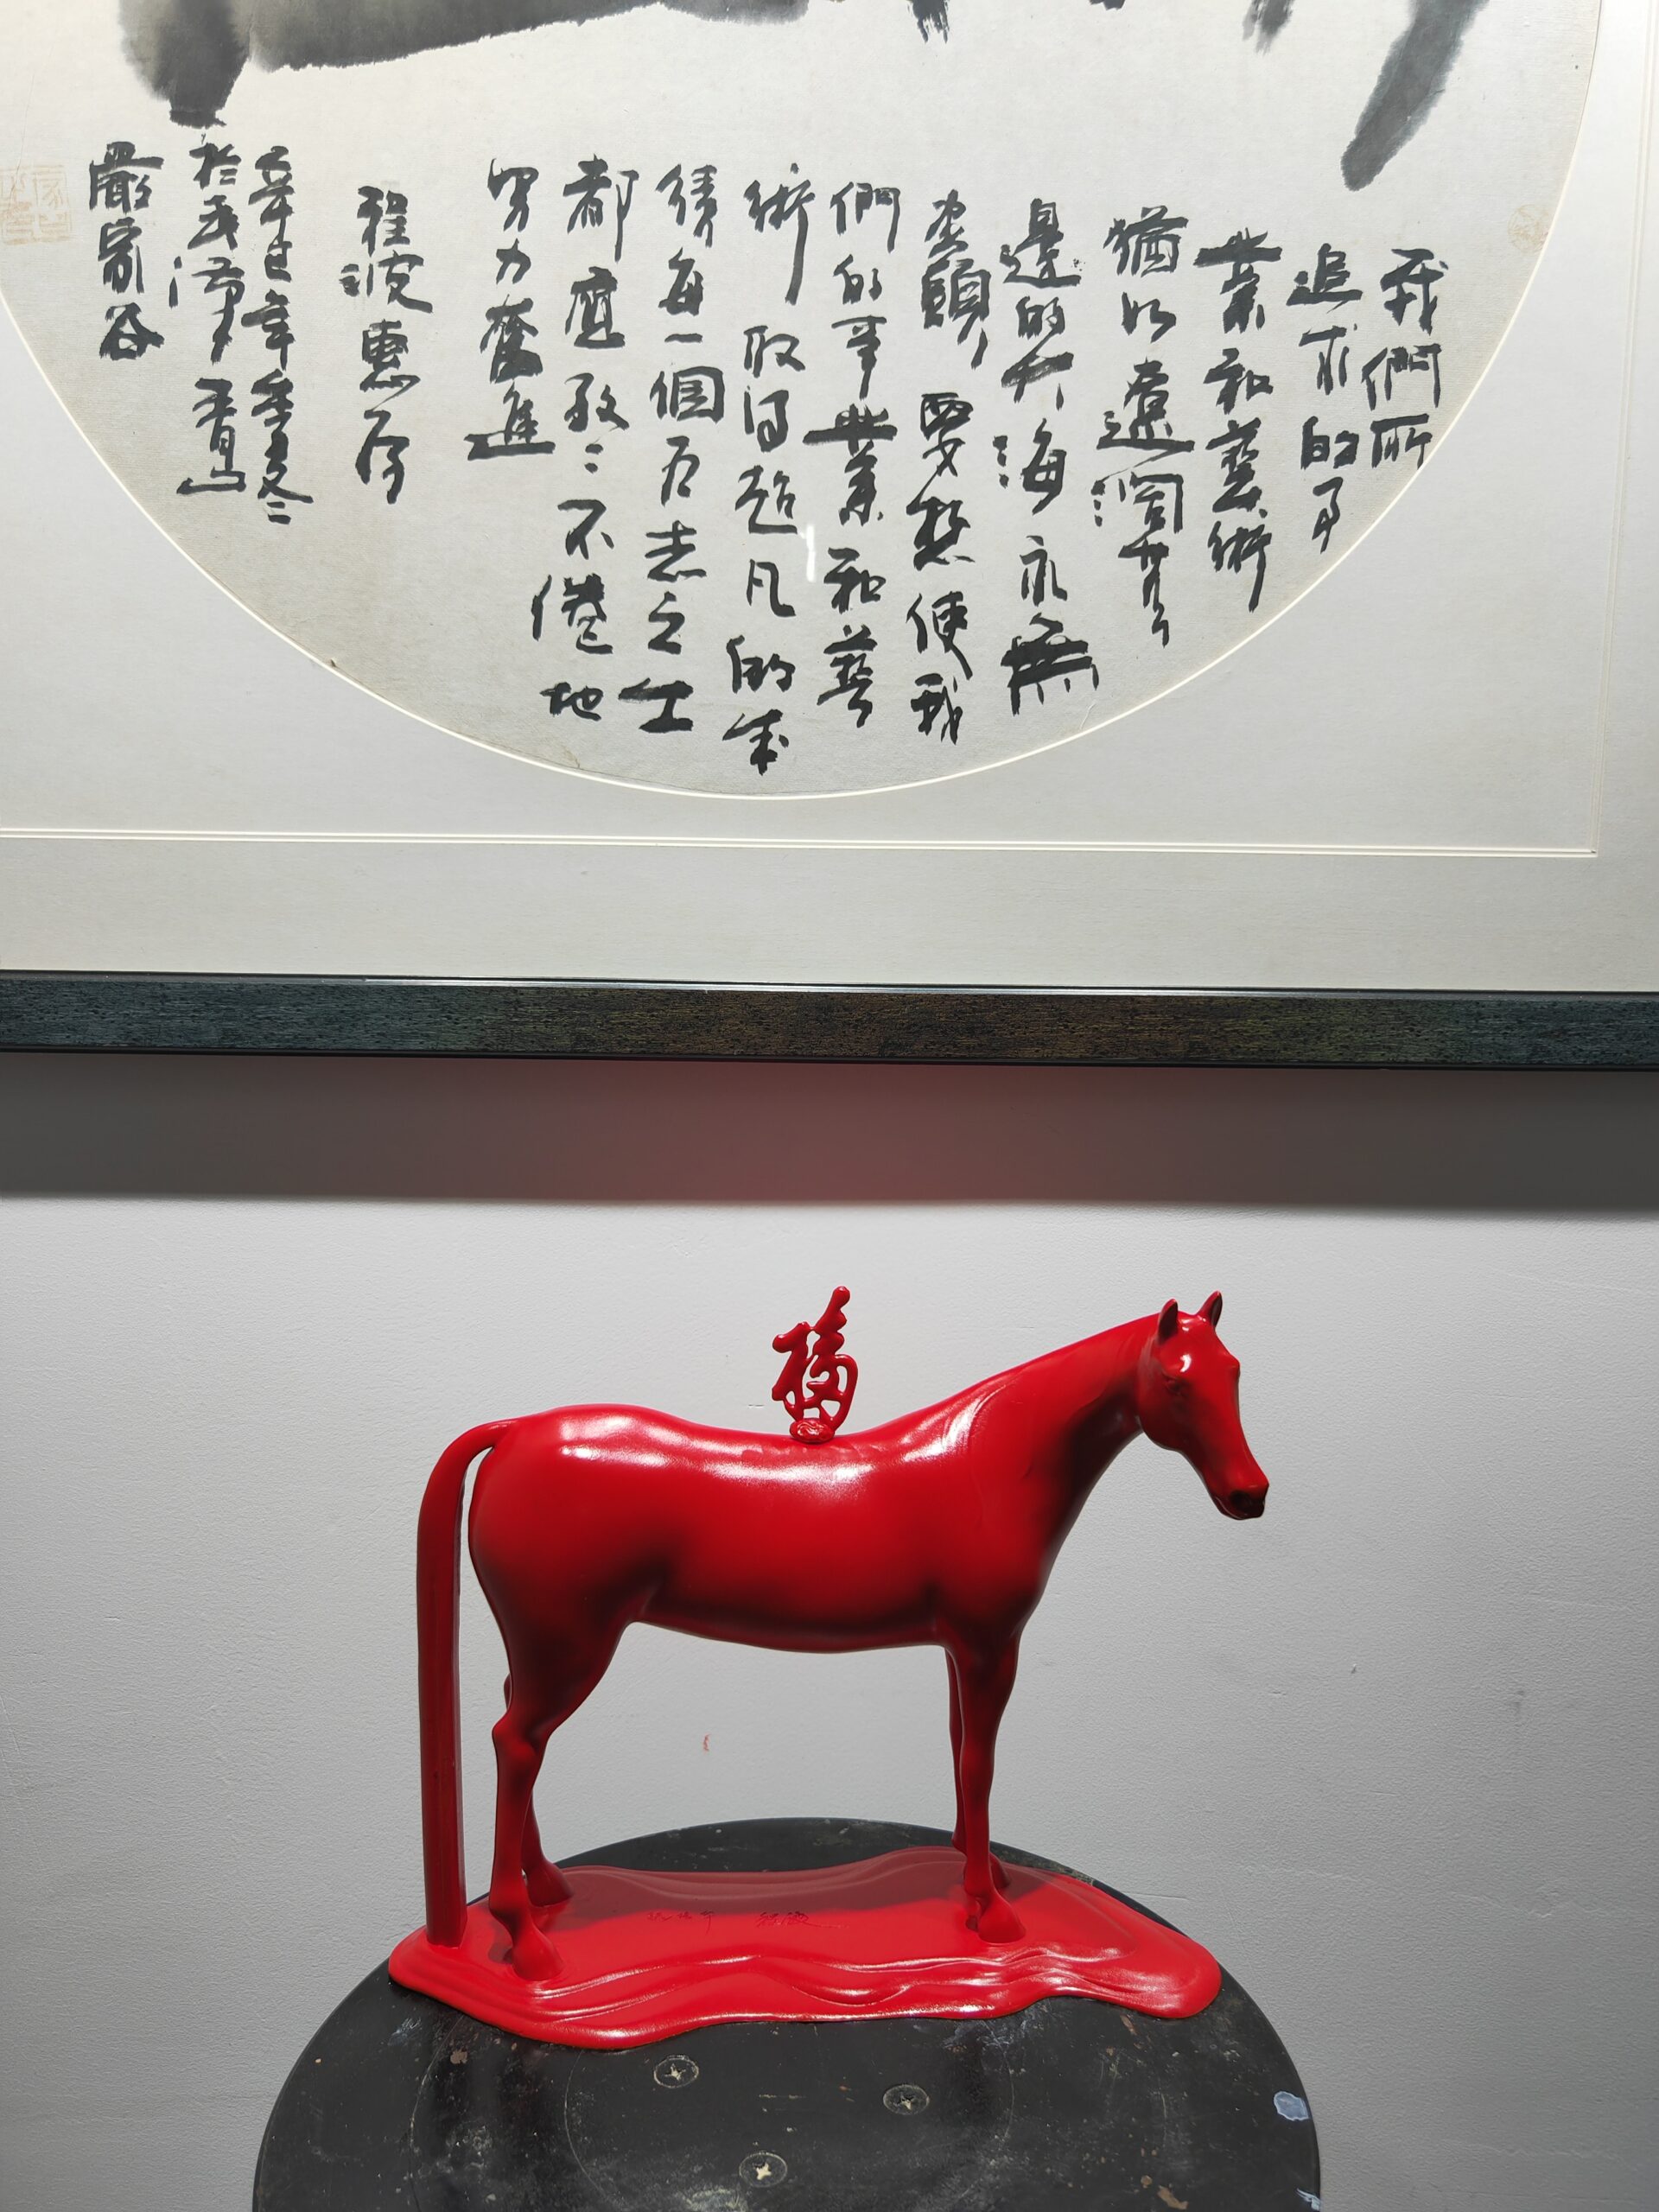 我們所
追求的事
業和藝術
猶如遼闊無
邊的大海永無
盡頭要想使我
們的事業和藝
術取得超凡的成
績每一個有志之士
都應孜孜不倦地
努力奮進
程波惠存
辛巳年季冬
於天津
嚴家
福
程波